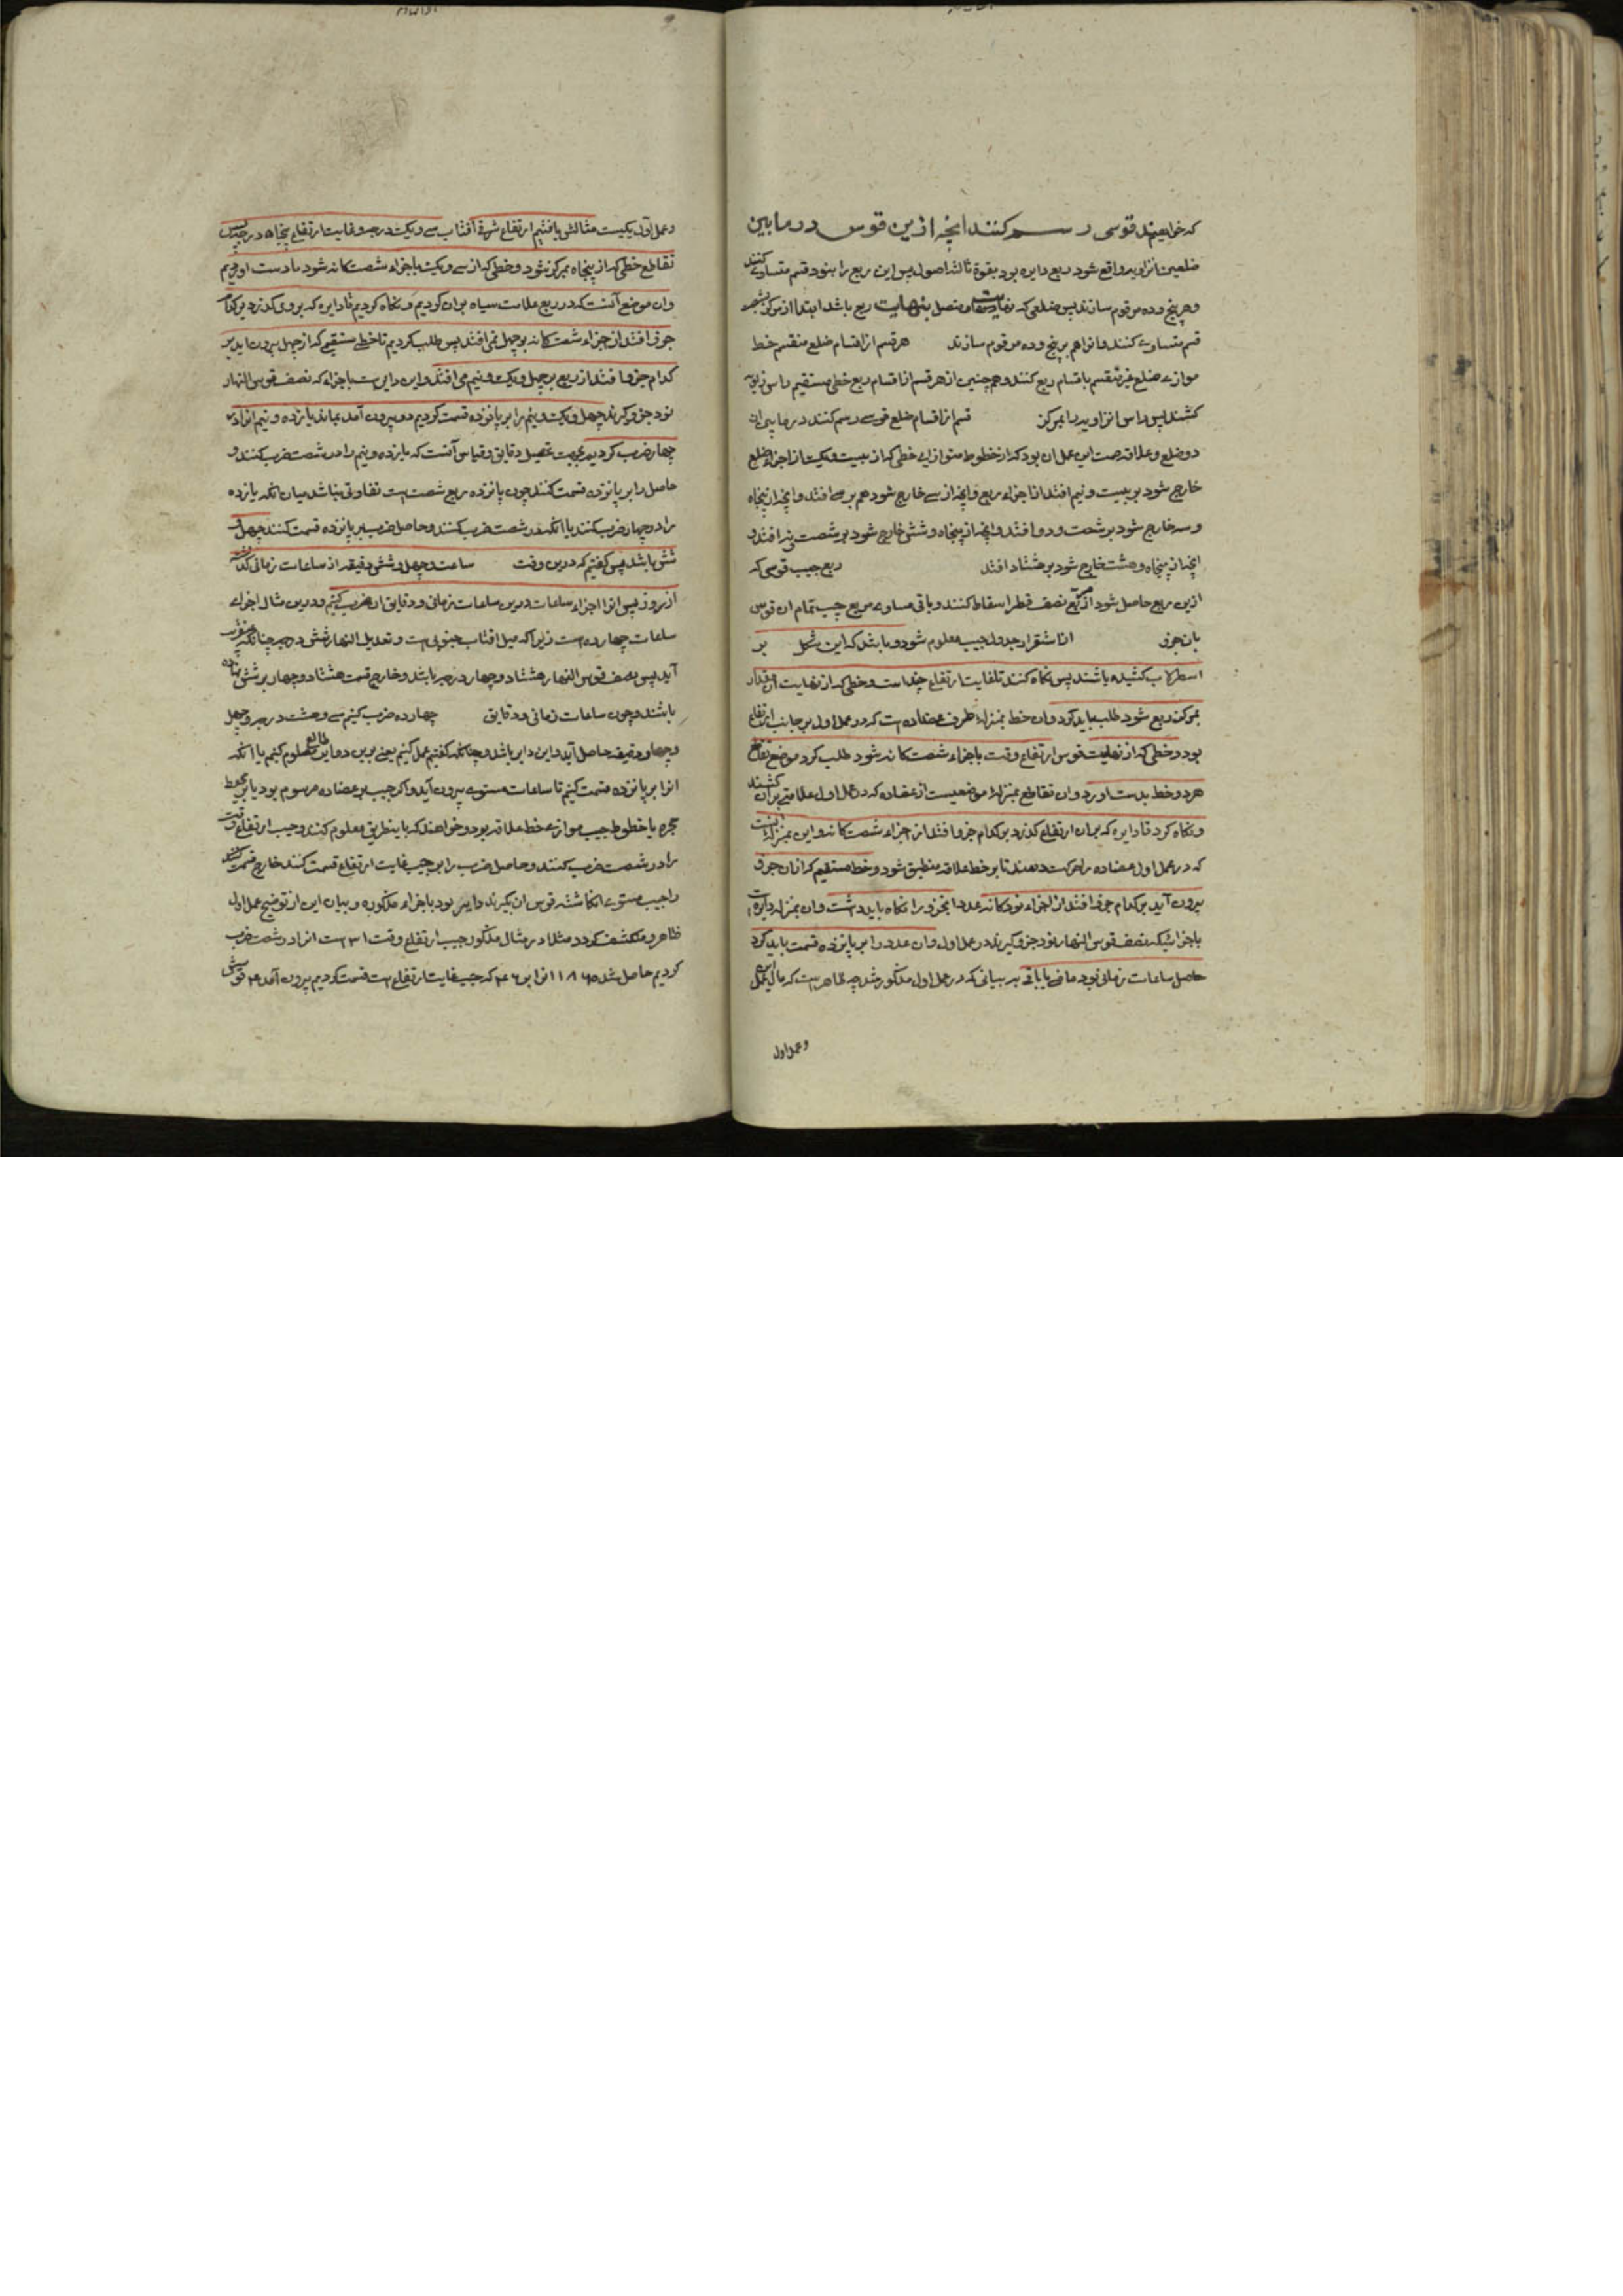 که خواهند قوسی رسم کنند انچه ازین قوس در مابین
ضلعین زاویه واقع شود ربع دایره بود بقوة ثالثه اصول پس این ربع را بنود قسم متساوی کنند
و هر پنج و ده مرقوم سازند پس ضلعی که متصل بنهایت ربع باشد ابتدا از مرکز بشصت
قسم متساوی کنند و انرا هم بر پنج و ده مرقوم سازند هر قسم از اقسام ضلع منقسم خط
موازی ضلع غیر منقسم باقسام ربع کنند و همچنین از هر قسم از اقسام ربع خطی مستقیم راس زاویه
کشند پس راس زاویه را بمرکز قسم از اقسام ضلع قوسی رسم کنند در مابین ان
دو ضلع و علامت صحت این عمل ان بود که از خطوط متوازی خطی که از بیست و یک از اجزاء ضلع
خارج شود بر بیست و نیم افتد از اجزاء ربع و انچه از سی خارج شود هم بر سی افتد و انچه از پنجاه
و سه خارج شود بر شصت و دو افتد و انچه از پنجاه و شش خارج شود بر شصت و نه افتد و
انچه از پنجاه و هشت خارج شود بر هشتاد افتد ربع جیب قوسی که
ازین ربع حاصل شود از مربع نصف قطر اسقاط کنند و باقی مساوی مربع جیب تمام ان قوس
بان جزو از استقرار جدول جیب معلوم شود و باشد که این شکل بر
اسطرلاب کشیده باشند پس نگاه کنند تا غایت ارتفاع چند است و خطی که از نهایت ان مقدار
بمرکز ربع شود طلب باید کرد و ان خط بمنزله طرف عضاده است که در عمل اول بر جانب ارتفاع
بود و خطی که از نهایت قوس ارتفاع وقت باجزاء شصت کانه شود طلب کرد موضع تقاطع
هر دو خط بدست اورد و ان تقاطع بمنزله موضعیست از عضاده که در عمل اول علامتی بران کشند
و نگاه کرد تا دایره که بران ارتفاع گذرد بر کدام جزو افتد از اجزاء شصت کانه و این بمنزله انست
که در عمل اول عضاده را حرکت دهند تا بر خط علاقه منطبق شود و خط مستقیم که از ان جزو
بیرون آید بر کدام جزو افتد از اجزاء نودکانه عدد انجزو را نگاه باید داشت و ان بمنزله دایرست
باجزائیکه نصف قوس النهار نود جزو گیرند در عمل اول و ان عدد را بر پانزده قسمت باید کرد
حاصل ساعات زمانی بود ماضی یا باقی بر بیانی که در عمل اول مذکور شد چه ظاهرست که مال این عمل
و عمل اول
و عمل اول یکیست مثالش یافتیم ارتفاع شرقی آفتاب سی و یک درجه و غایت ارتفاع پنجاه درجه پس
تقاطع خطی که از پنجاه بمرکز شود و خطی که از سی و یک باجزاء شصت کانه شود بدست اوردیم
و ان موضع آنست که در ربع علامت سیاه بران کردیم و نگاه کردیم تا دایره که بروی گذرد بر کدام
جزو افتد از اجزاء شصت کانه بر چهل می افتد پس طلب کردیم تا خط مستقیم که از چهل بیرون اید بر
کدام جزو افتد از ربع بر چهل و یک و نیم می افتد و این دایرست باجزاء که نصف قوس النهار
نود جزو گیرند چهل و یک و نیم را بر پانزده قسمت کردیم دو بیرون آمد بماند یازده و نیم انرا در
چهار ضرب کردیم بجهت تحصیل دقایق و قیاس آنست که یازده و نیم را در شصت ضرب کنند و
حاصل را بر پانزده قسمت کنند چون پانزده ربع شصت است تفاوتی نباشد میان انکه یازده
را در چهار ضرب کنند یا انکه در شصت ضرب کنند و حاصل ضرب بر پانزده قسمت کنند چهل و
شش باشد پس گفتیم که درین وقت ساعت و چهل و شش دقیقه از ساعات زمانی گذشته
از روز پس انرا اجزاء ساعات درین ساعات زمانی و دقایق ان ضرب کنیم و درین مثال اجزاء
ساعات چهارده است زیرا که میل افتاب جنوبی است و تعدیل النهار شش درجه چنانکه
آید پس نصف قوس النهار هشتاد و چهار درجه باشد و خارج قسمت هشتاد و چهار بر شش چهارده
باشد و چون ساعات زمانی و دقایق چهارده ضرب کنیم سی و هشت درجه و چهل
و چهار دقیقه حاصل آید و این دایر باشد و چنانکه گفتیم عمل کنیم یعنی برین دوایر طالع معلوم کنیم یا انکه
انرا بر پانزده قسمت کنیم تا ساعات مستوی بیرون آید و اگر جیب بر عضاده مرسوم بود یا بر محیط
حجره یا خطوط جیب موازی خط علاقه بود و خواهند که باینطریق معلوم کنند جیب ارتفاع وقت
را در شصت ضرب کنند و حاصل ضرب را بر جیب غایت ارتفاع قسمت کنند خارج قسمت
را جیب مستوی انگاشته قوس ان بگیرند دایر بود باجزاء مذکوره و بیان این از توضیح عمل اول
ظاهر و منکشف گردد مثلا در مثال مذکور جیب ارتفاع وقت ۳۱ است انرا در شصت ضرب
کردیم حاصل شد ۱۸۶۵ انرا بر ۴۶ که جیب غایت ارتفاع است قسمت کردیم بیرون آمد ۴۰ قوسش